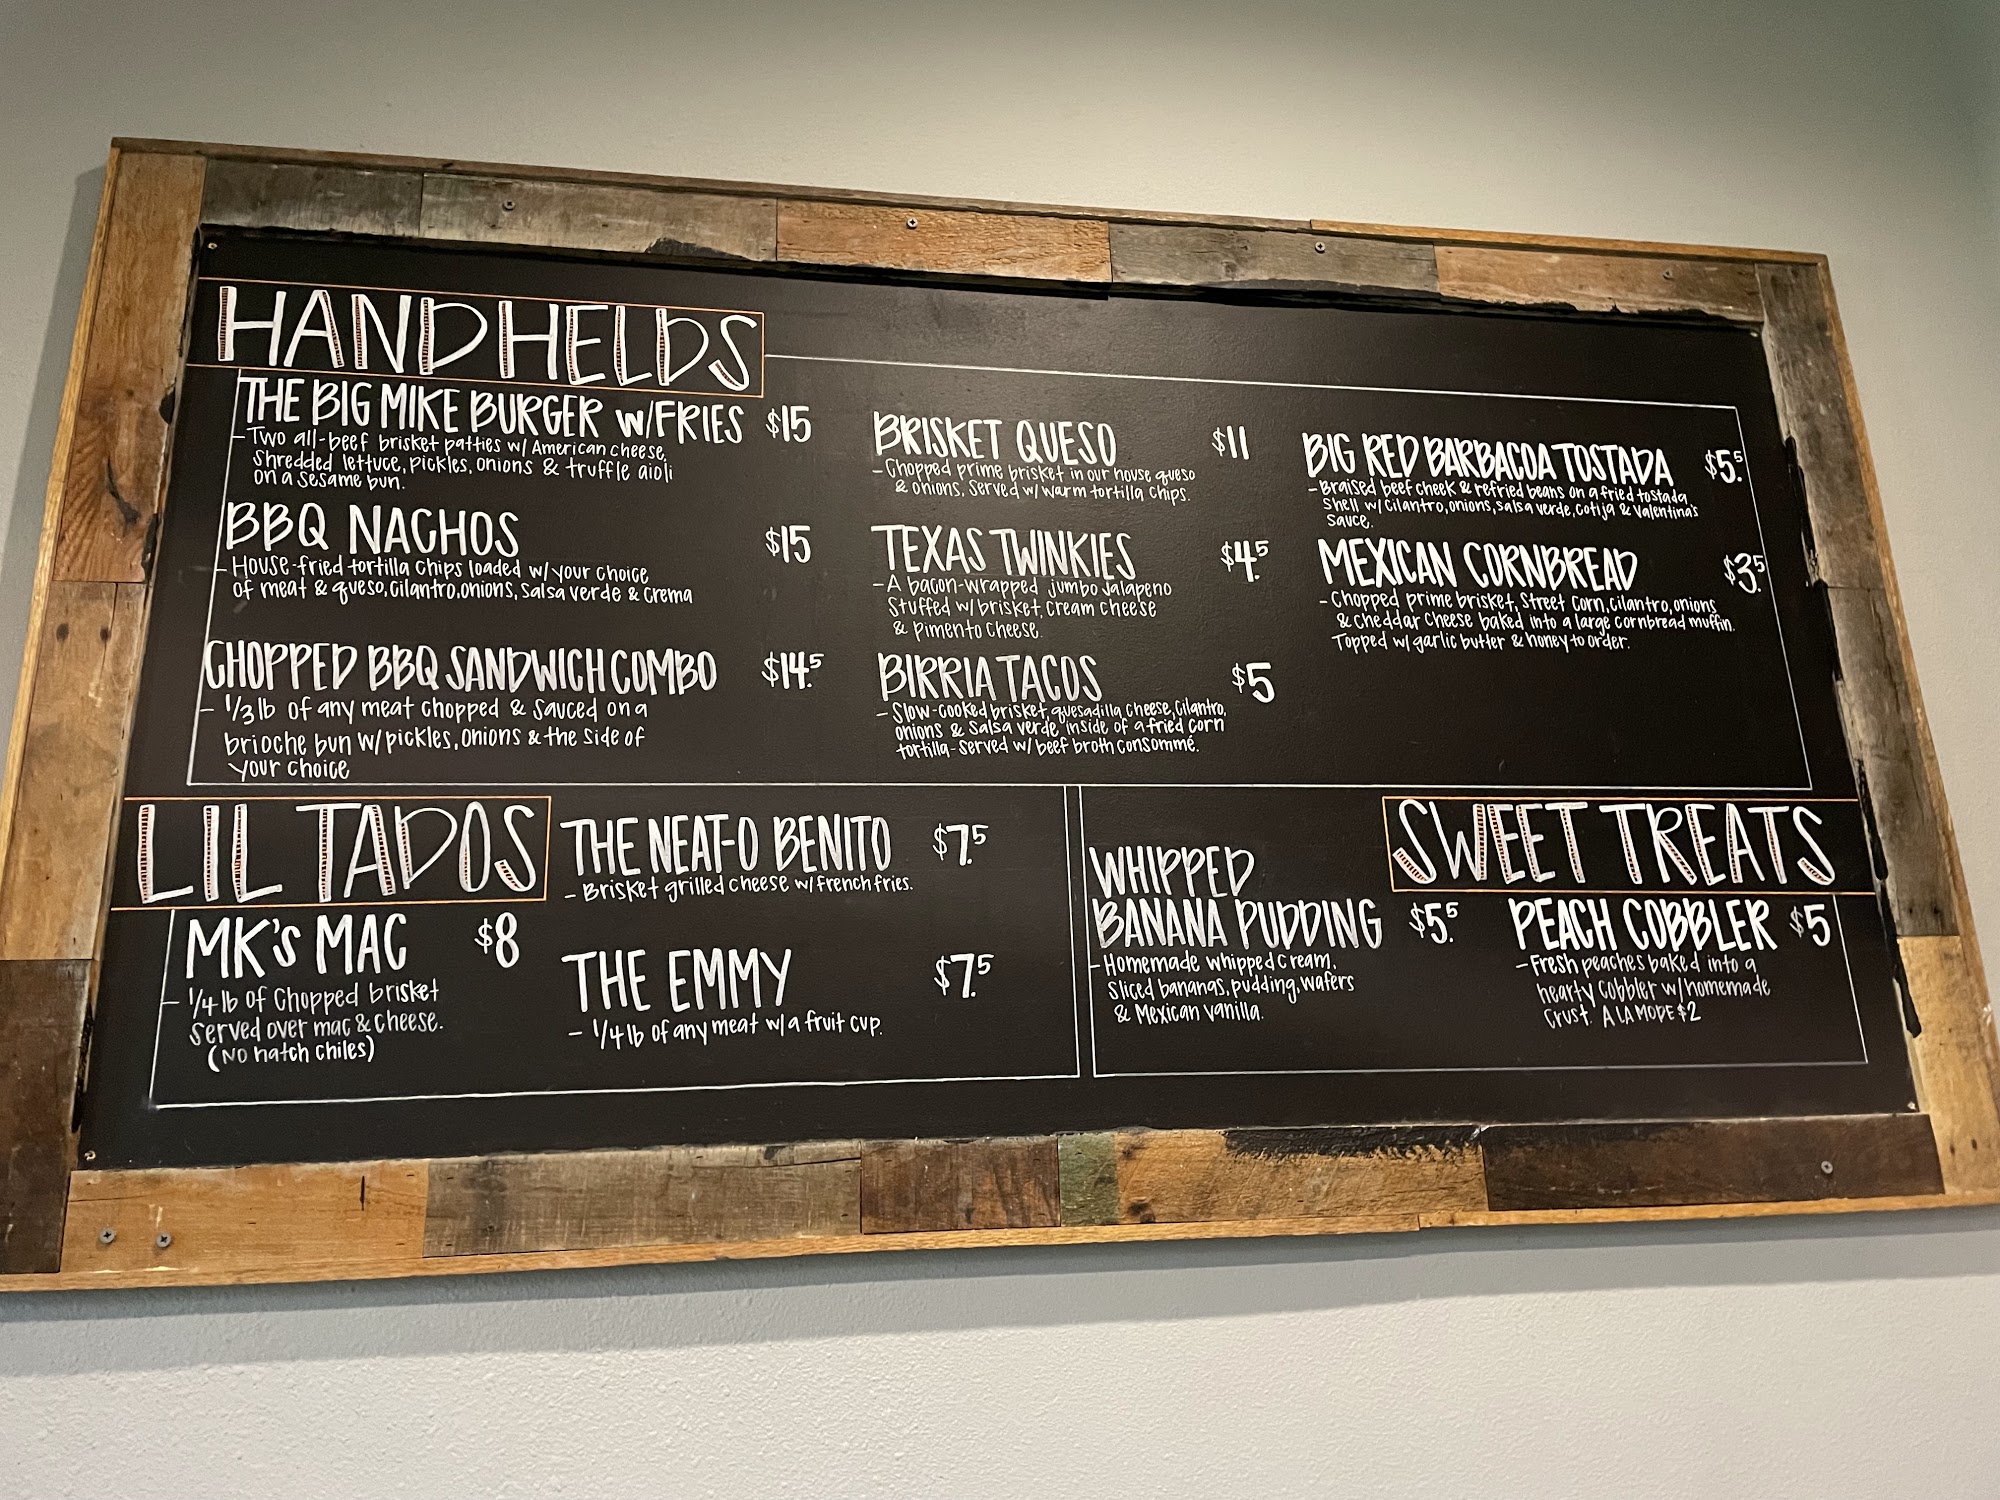 HANDHELDS
THE BIG MIKE BURGER W/FRIES $15
- Two all-beef brisket patties w/ American cheese,
shredded lettuce, pickles, onions & truffle aioli
on a sesame bun.
BBQ NACHOS $15
- House-fried tortilla chips loaded w/ your choice
of meat & queso, cilantro, onions, salsa verde & crema
CHOPPED BBQ SANDWICH COMBO $14.5
- 1/3 lb of any meat chopped & sauced on a
brioche bun w/ pickles, onions & the side of
your choice
BRISKET QUESO $11
- Chopped prime brisket in our house queso
& onions. Served w/ warm tortilla chips.
TEXAS TWINKIES $4.5
- A bacon-wrapped jumbo jalapeno
stuffed w/ brisket, cream cheese
& pimento cheese.
BIRRIA TACOS $5
- Slow-cooked brisket, quesadilla cheese, cilantro,
onions & salsa verde inside of a fried corn
tortilla - served w/ beef broth consommé.
BIG RED BARBACOA TOSTADA $5.5
- Braised beef cheek & refried beans on a fried tostada
shell w/ cilantro, onions, salsa verde, cotija & Valentina's
sauce.
MEXICAN CORNBREAD $3.5
- Chopped prime brisket, street corn, cilantro, onions
& cheddar cheese baked into a large cornbread muffin.
Topped w/ garlic butter & honey to order.
LIL TADOS
MK's MAC $8
- 1/4 lb of chopped brisket
served over mac & cheese.
(No hatch chiles)
THE NEAT-O BENITO $7.5
- Brisket grilled cheese w/ french fries.
THE EMMY $7.5
- 1/4 lb of any meat w/ a fruit cup.
SWEET TREATS
WHIPPED
BANANA PUDDING $5.5
- Homemade whipped cream,
sliced bananas, pudding, wafers
& Mexican vanilla.
PEACH COBBLER $5
- Fresh peaches baked into a
hearty cobbler w/ homemade
crust. A LA MODE $2